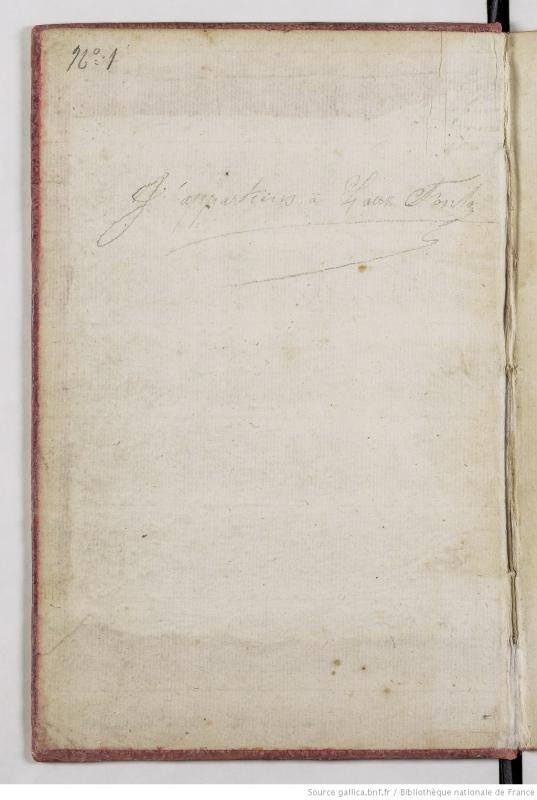 N.º 1
J'appartiens à
Source gallica.bnf.fr / Bibliothèque nationale de France